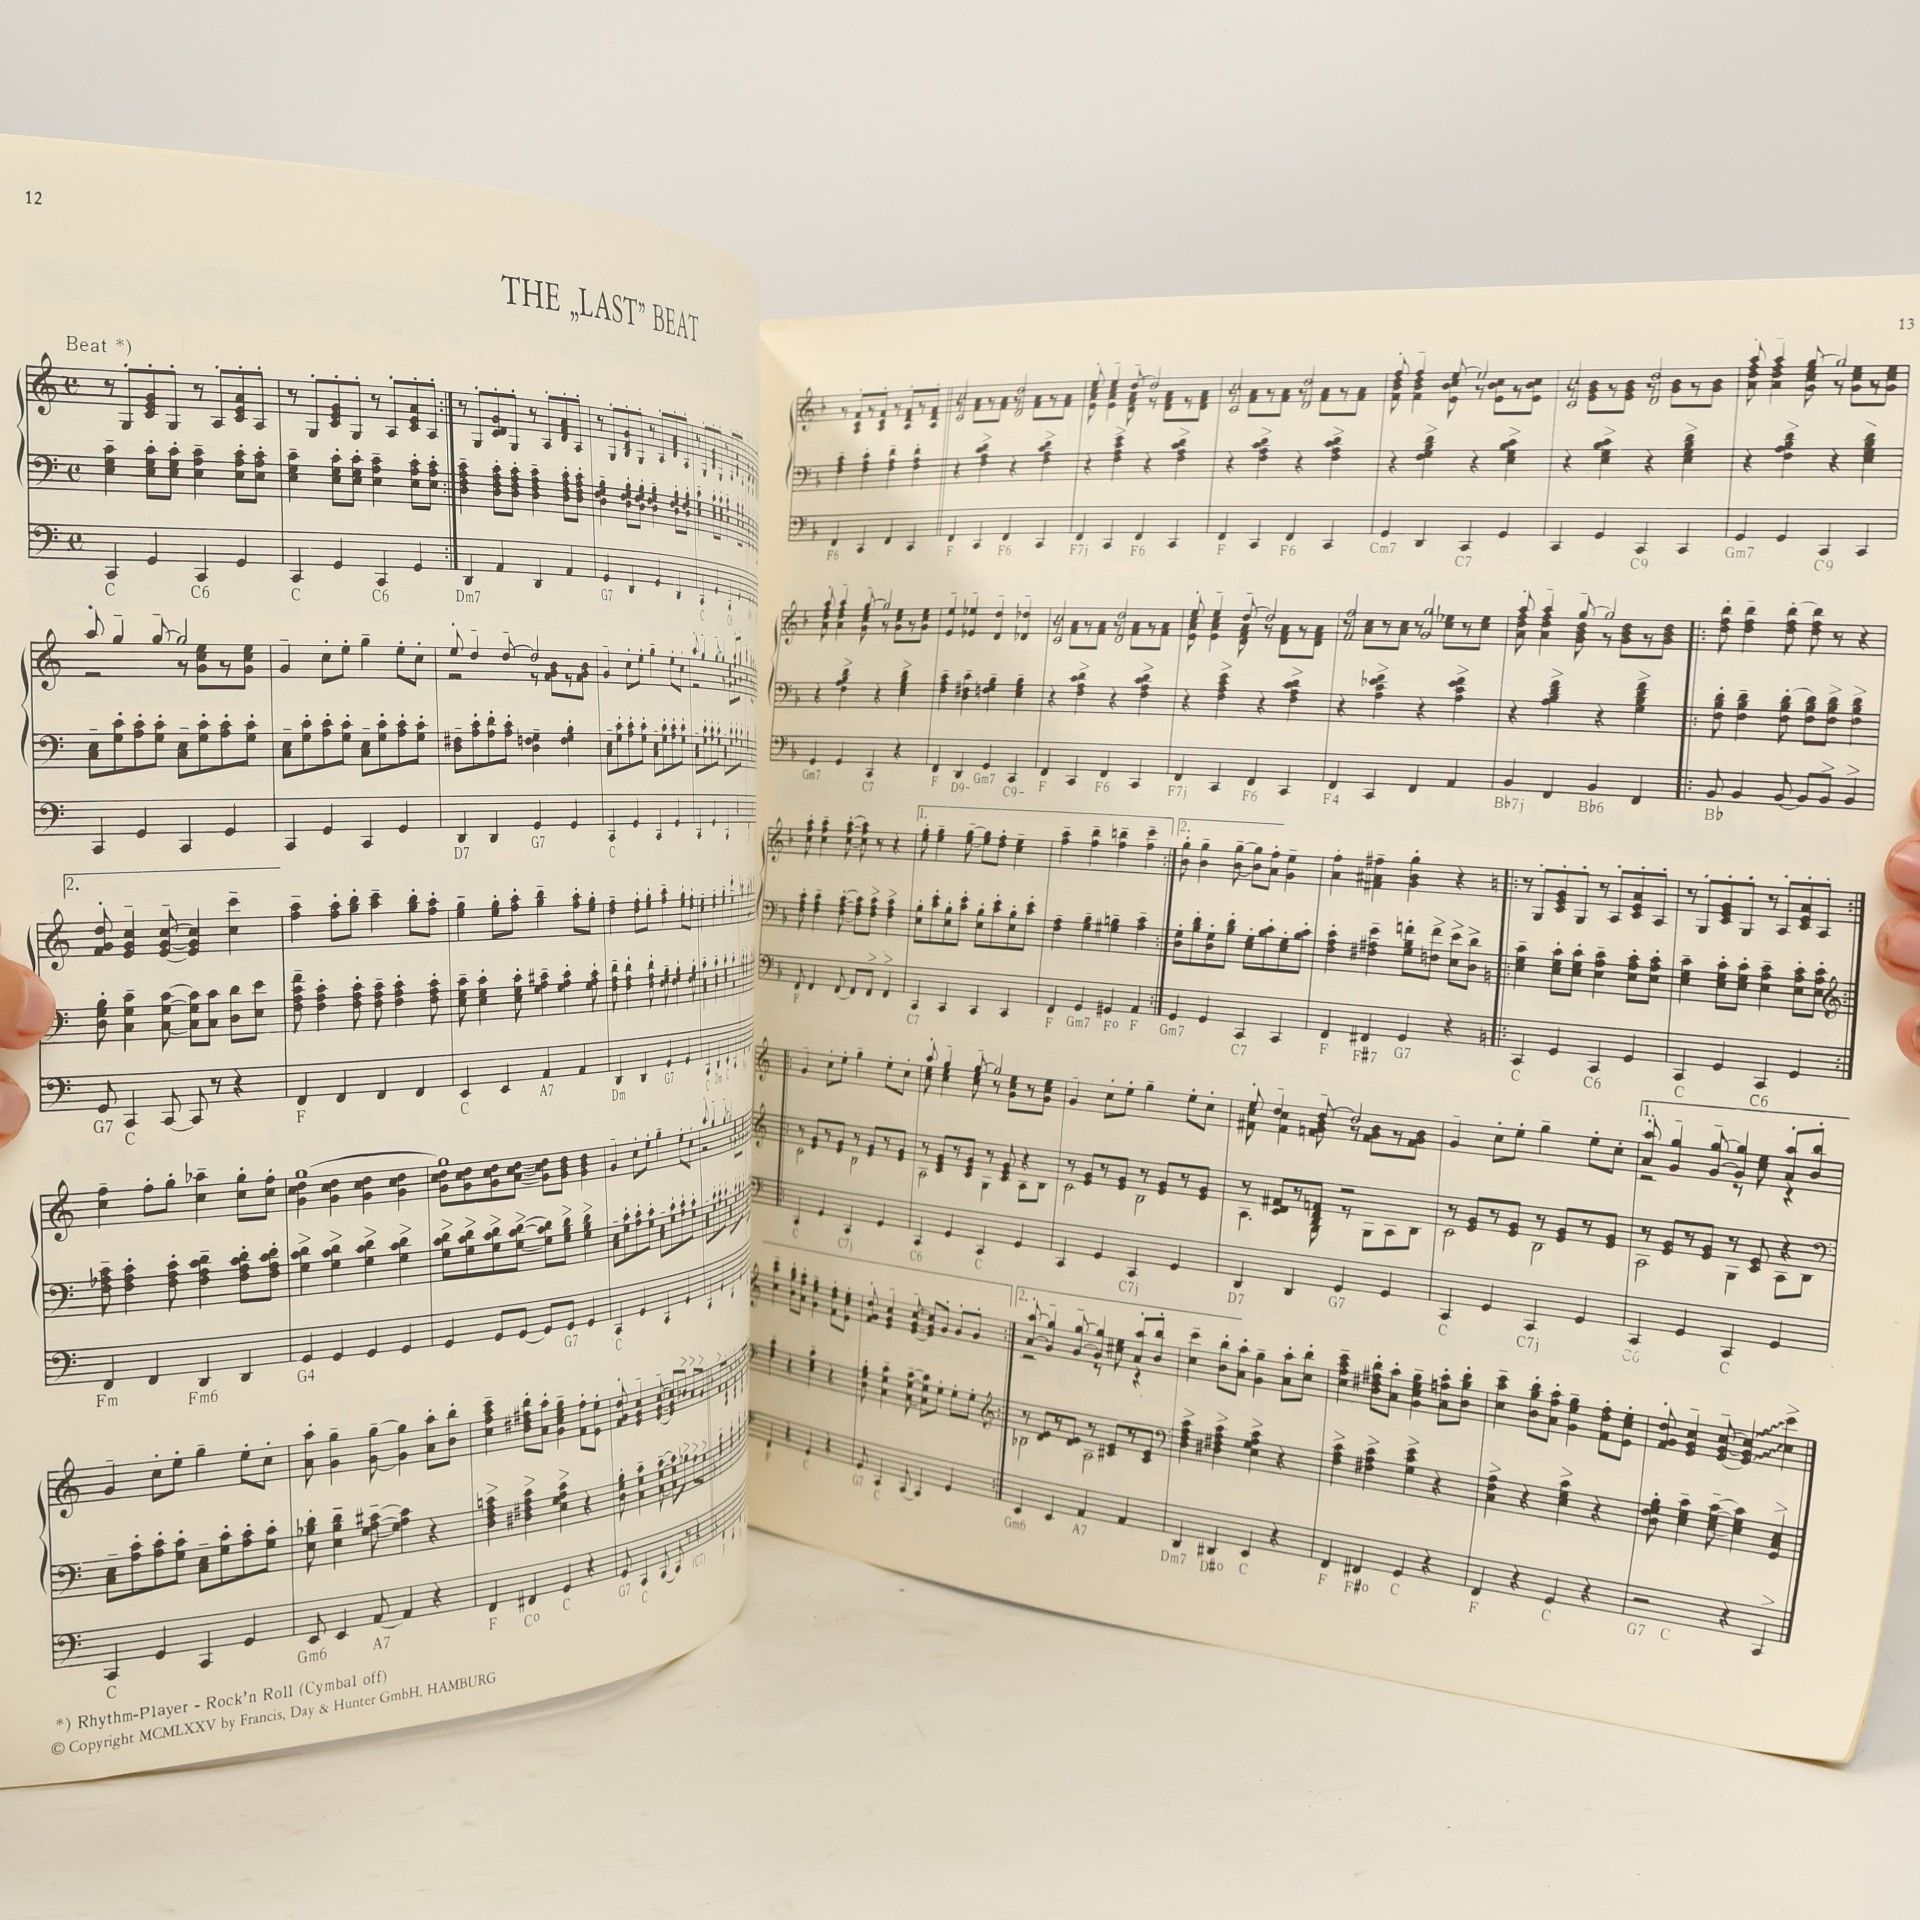 12
THE „LAST” BEAT
Beat *)
C C6 C C6 Dm7 G7
D7 G7 C
2.
G7 C F C A7 Dm G7
Fm Fm6 G4 G7 C
C Gm6 A7 F Co C G7 C (C7) F
*) Rhythm-Player - Rock'n Roll (Cymbal off)
© Copyright MCMLXXV by Francis, Day & Hunter GmbH, HAMBURG
13
F6 F F6 F7j F6 F F6 Cm7 C7 C9 Gm7 C9
Gm7 C7 F D9- Gm7 C9- F F6 F7j F6 F4 Bb7j Bb6 Bb
1. 2.
F C7 F Gm7 Fo F Gm7 C7 F F#7 G7 C C6 C C6
1.
C C7j C6 C C7j D7 G7 C C7j C6 C
2.
F C G7 C Gm6 A7 Dm7 D#o C F F#o C F C G7 C